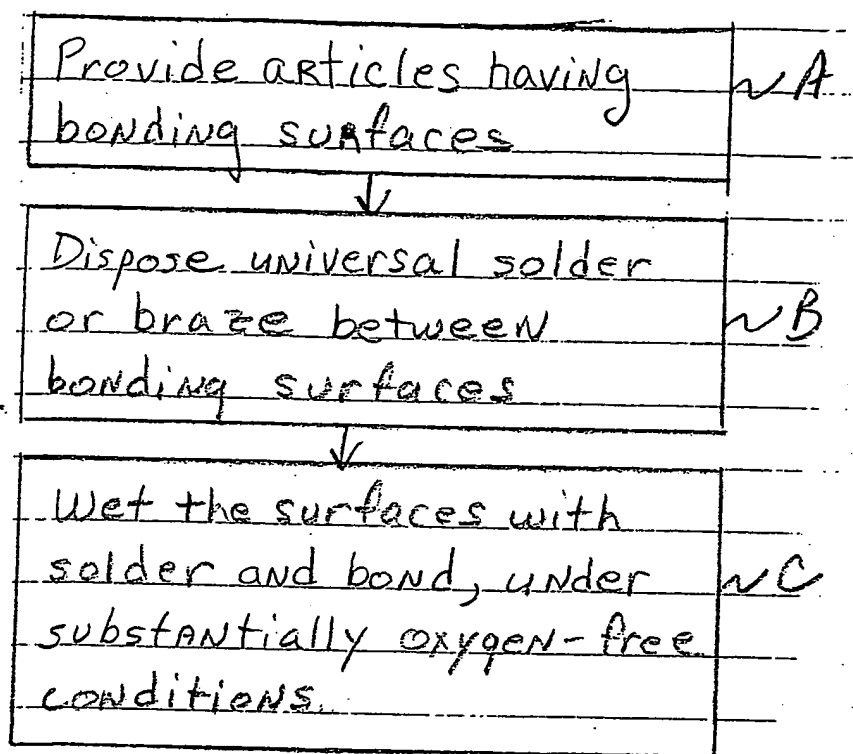 Provide articles having
~ A
bonding surfaces
Dispose universal solder
or braze between
~ B
bonding surfaces
Wet the surfaces with
solder and bond, under
~ C
substantially oxygen-free
conditions.